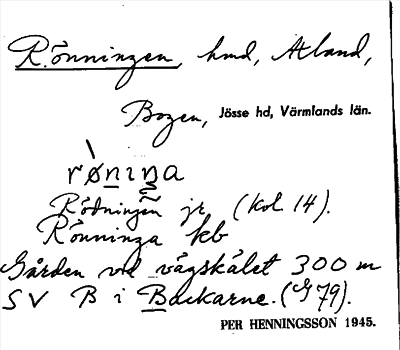 Rönningen, hmd, Åtland,
Bogen, Jösse hd, Värmlands län.
rø̀nıŋa
Rödningen jr (kol 14).
Rönninga kb
Gården vid vägskälet 300 m
SV B i Backarne. (G 79).
PER HENNINGSSON 1945.